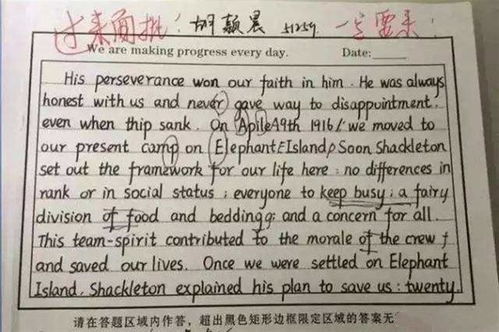 过来面批! 胡颢晨 51259 一定要来!
We are making progress every day. Date:
His perseverance won our faith in him. He was always
honest with us and never gave way to disappointment,
even when thip sank. On Apile49th 1916/ we moved to
our present camp on Elephant Island. Soon Shackleton
set out the framework for our life here: no differences in
rank or in social status; everyone to keep busy; a fairy
division of food and bedding; and a concern for all.
This team-spirit contributed to the morale of the crew
and saved our lives. Once we were settled on Elephant
Island. Shackleton explained his plan to save us: twenty
请在答题区域内作答，超出黑色矩形边框限定区域的答案无